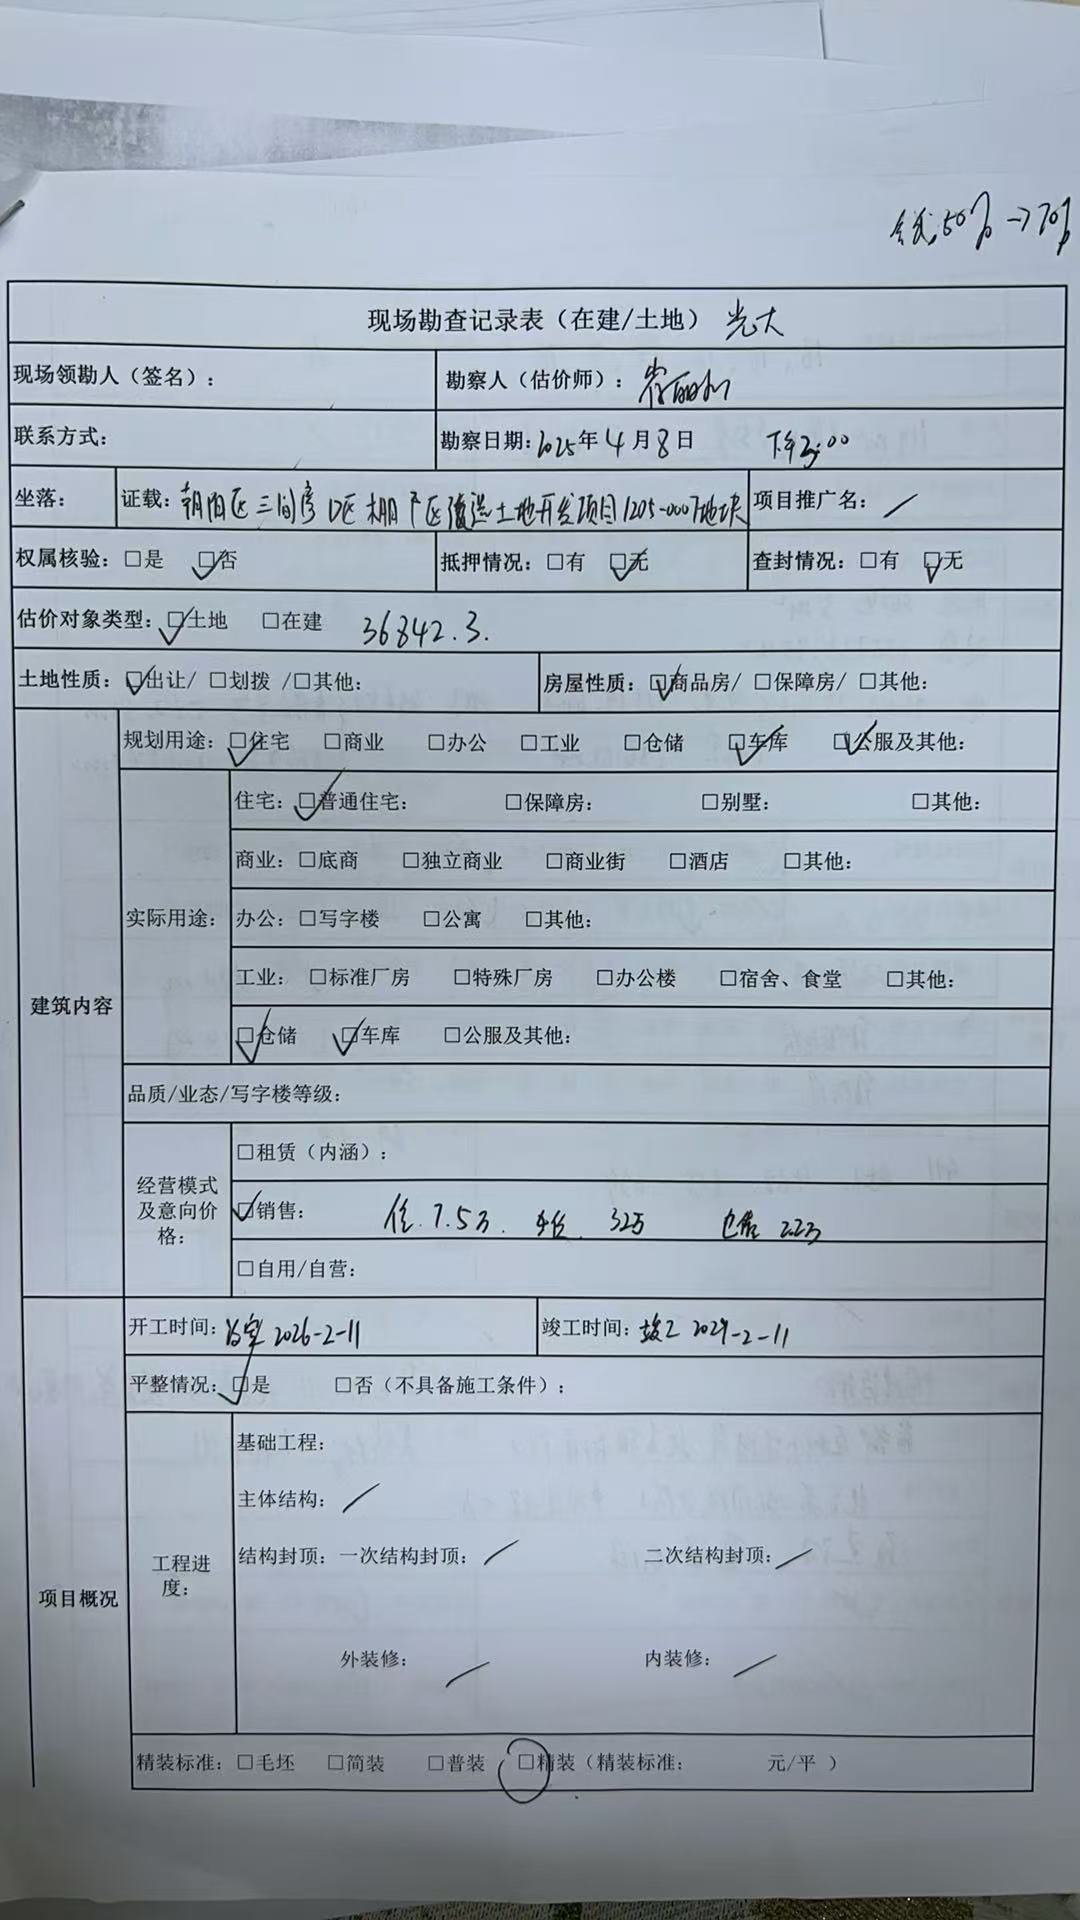 50% → 70%
现场勘查记录表（在建/土地） 光大
现场领勘人（签名）： 勘察人（估价师）：
联系方式： 勘察日期：2025年4月8日 下午3:00
坐落： 证载：朝阳区三间房D区棚户区改造土地开发项目1205-0007地块 项目推广名：
权属核验：☐是 ☑否 抵押情况：☐有 ☑无 查封情况：☐有 ☑无
估价对象类型：☑土地 ☐在建 36842.3.
土地性质：☑出让/ ☐划拨 /☐其他： 房屋性质：☑商品房/ ☐保障房/ ☐其他：
建筑内容
规划用途：☑住宅 ☐商业 ☐办公 ☐工业 ☐仓储 ☑车库 ☑公服及其他：
实际用途：
住宅：☑普通住宅： ☐保障房： ☐别墅： ☐其他：
商业：☐底商 ☐独立商业 ☐商业街 ☐酒店 ☐其他：
办公：☐写字楼 ☐公寓 ☐其他：
工业：☐标准厂房 ☐特殊厂房 ☐办公楼 ☐宿舍、食堂 ☐其他：
☑仓储 ☑车库 ☐公服及其他：
品质/业态/写字楼等级：
经营模式
及意向价
格：
☐租赁（内涵）：
☑销售： 住.7.5万. 车位. 32万 仓储 2.2万
☐自用/自营：
项目概况
开工时间： 2026-2-11 竣工时间：竣工 2029-2-11
平整情况：☑是 ☐否（不具备施工条件）：
工程进
度：
基础工程：
主体结构：
结构封顶：一次结构封顶： 二次结构封顶：
外装修： 内装修：
精装标准：☐毛坯 ☐简装 ☐普装 ☐精装（精装标准： 元/平 ）